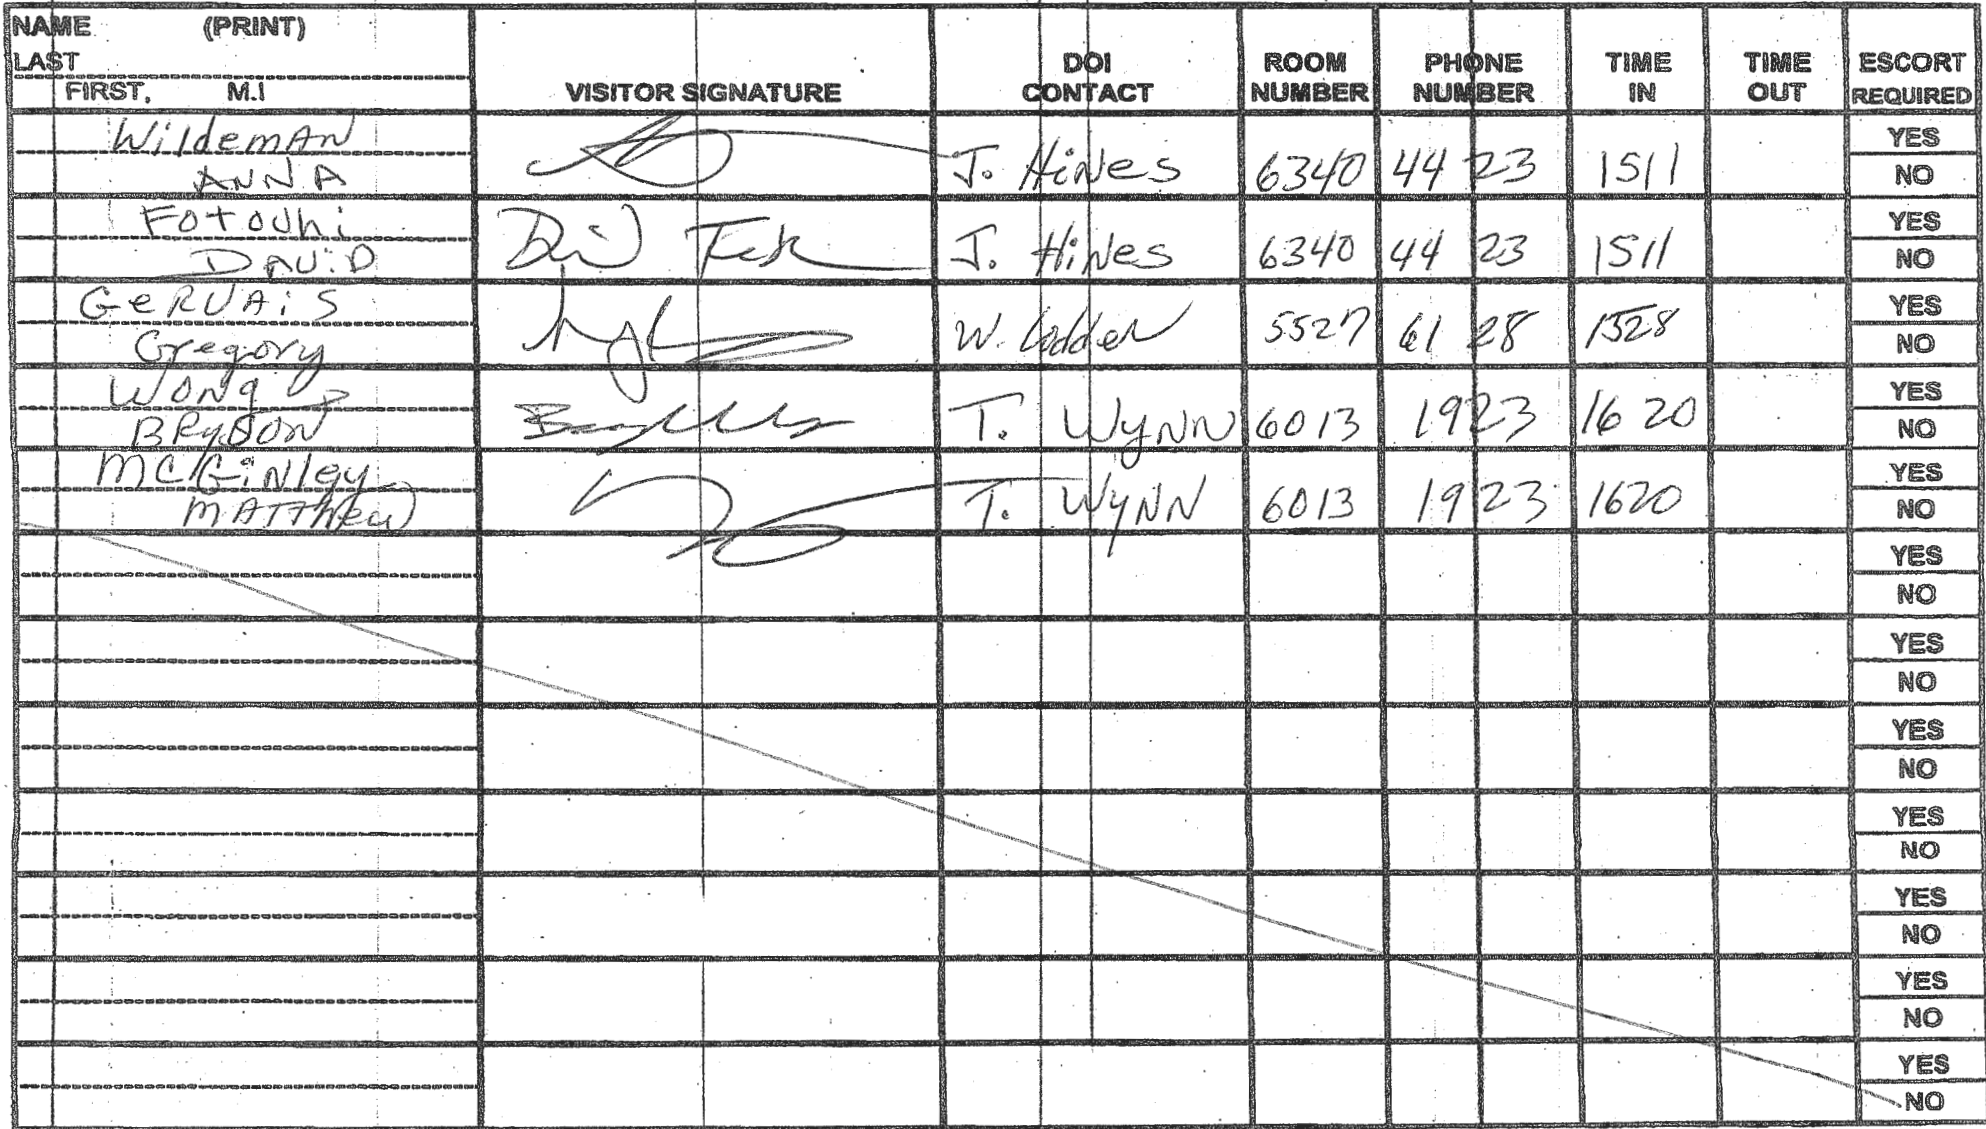 NAME (PRINT)
LAST
FIRST, M.I
VISITOR SIGNATURE
DOI CONTACT
ROOM NUMBER
PHONE NUMBER
TIME IN
TIME OUT
ESCORT REQUIRED
Wildeman
ANNA
J. Hines 6340 44 23 1511
YES
NO
Fotouhi
DAVID
J. Hines 6340 44 23 1511
YES
NO
GERVAIS
Gregory
W. 5527 61 28 1528
YES
NO
Wong
BRYSON
T. WYNN 6013 1923 16 20
YES
NO
McGinley
MATTHEW
T. WYNN 6013 1923 1620
YES
NO
YES
NO
YES
NO
YES
NO
YES
NO
YES
NO
YES
NO
YES
NO